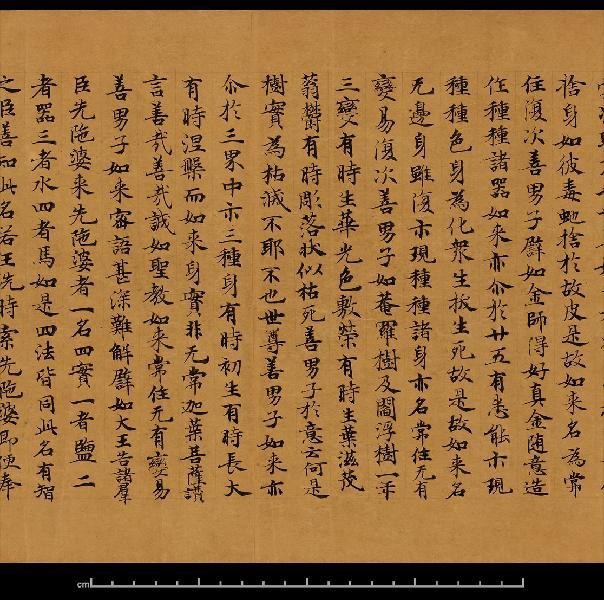 捨身如彼毒虵捨於故皮是故如来名為常
住復次善男子辟如金師得好真金随意造
作種種諸器如来亦尒於廿五有悉能示現
種種色身為化衆生拔生死故是故如来名
无邊身雖復示現種種諸身亦名常住无有
變易復次善男子如菴羅樹及閻浮樹一年
三變有時生華光色敷榮有時生葉滋茂
蓊欝有時彫落状似枯死善男子於意云何是
樹實為枯滅不耶不也世尊善男子如来亦
尒於三界中示三種身有時初生有時長大
有時涅槃而如来身實非无常迦葉菩薩讃
言善哉善哉誠如聖教如来常住无有變易
善男子如来密語甚深難解辟如大王告諸羣
臣先陁婆来先陁婆者一名四實一者鹽二
者器三者水四者馬如是四法皆同此名有智
之臣善知此名若王洗時索先陁婆即便奉